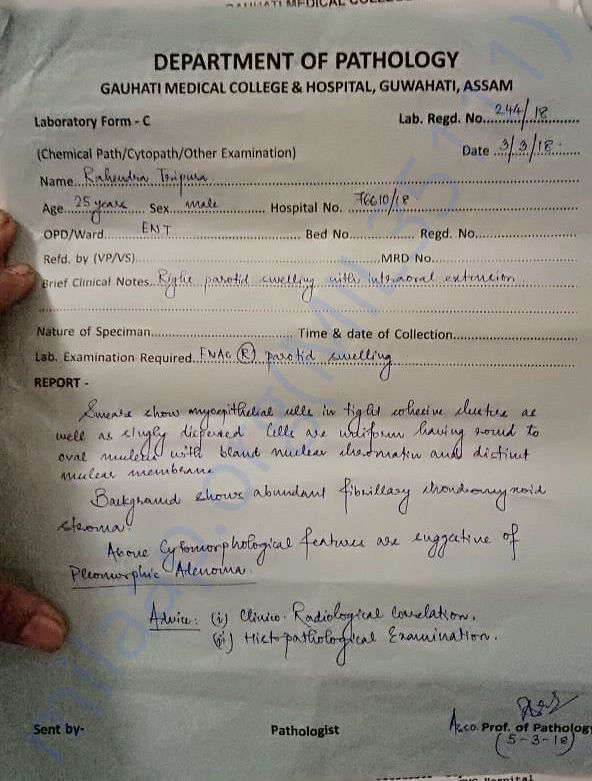 GAUHATI MEDICAL COLLEGE
DEPARTMENT OF PATHOLOGY
GAUHATI MEDICAL COLLEGE & HOSPITAL, GUWAHATI, ASSAM
Laboratory Form - C Lab. Regd. No. 244/18
(Chemical Path/Cytopath/Other Examination) Date 3/3/18.
Name Rahendra Tripura
Age 25 years Sex male Hospital No. 76610/18
OPD/Ward ENT Bed No. Regd. No.
Refd. by (VP/VS) MRD No.
Brief Clinical Notes Right parotid swelling with intraoral extension
Nature of Speciman Time & date of Collection
Lab. Examination Required FNAC (R) parotid swelling
REPORT -
Smears show myoepithelial cells in tight cohesive clusters as
well as singly dispersed. Cells are uniform having round to
oval nucleus with bland nuclear chromatin and distinct
nuclear membrane
Background shows abundant fibrillary chondromyxoid
stroma.
Above Cytomorphological features are suggestive of
Pleomorphic Adenoma.
Advice: (i) Clinico-Radiological correlation.
(ii) Histopathological Examination.
Sent by- Pathologist Asso. Prof. of Pathology
(5-3-18)
milaap.org(MIL35111)